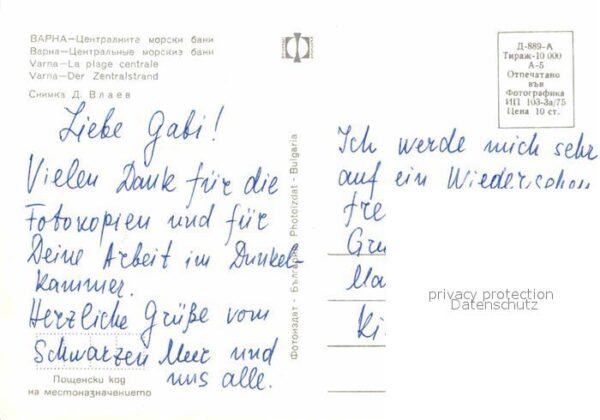 ВАРНА—Централните морски бани
Варна—Центральные морские бани
Varna—La plage centrale
Varna—Der Zentralstrand
Снимка Д. Влаев
Liebe Gabi!
Vielen Dank für die
Fotokopien und für
Deine Arbeit im Dunkel-
kammer.
Herzliche Grüße vom
Schwarzen Meer und
uns alle.
Пощенски код
на местоназначението
Фотоиздат - България Photoizdat - Bulgaria
Д-889-А
Тираж-10 000
А-5
Отпечатано
във
Фотографика
ИП 103-3а/75
Цена 10 ст.
Ich werde mich sehr
auf ein Wiedersehen
fre
Gru
Ma
Ki
privacy protection
Datenschutz